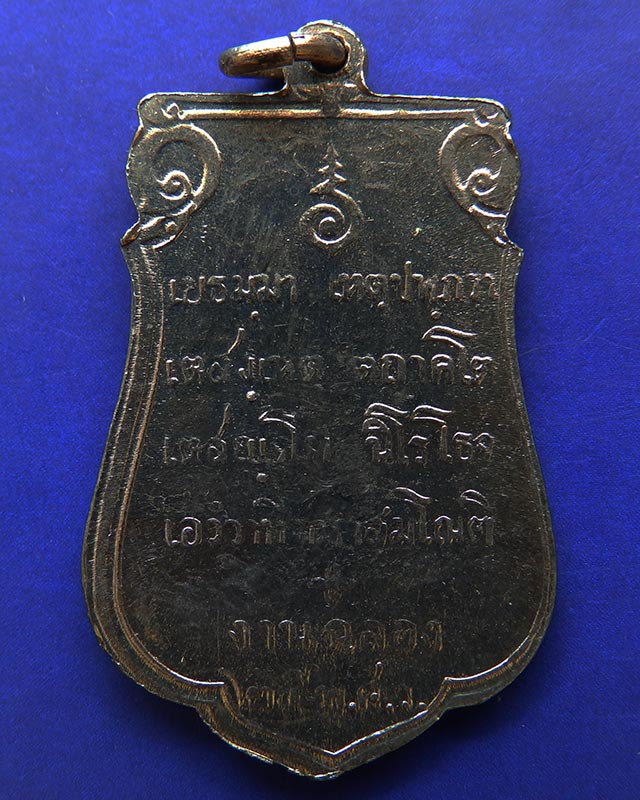 เยธมฺมา เหตุปพฺภวา
เตสํเหตุ ตถาคโต
เตสญฺจโย นิโรโธจ
เอวํวาที มหาสมโณติ
งานฉลอง